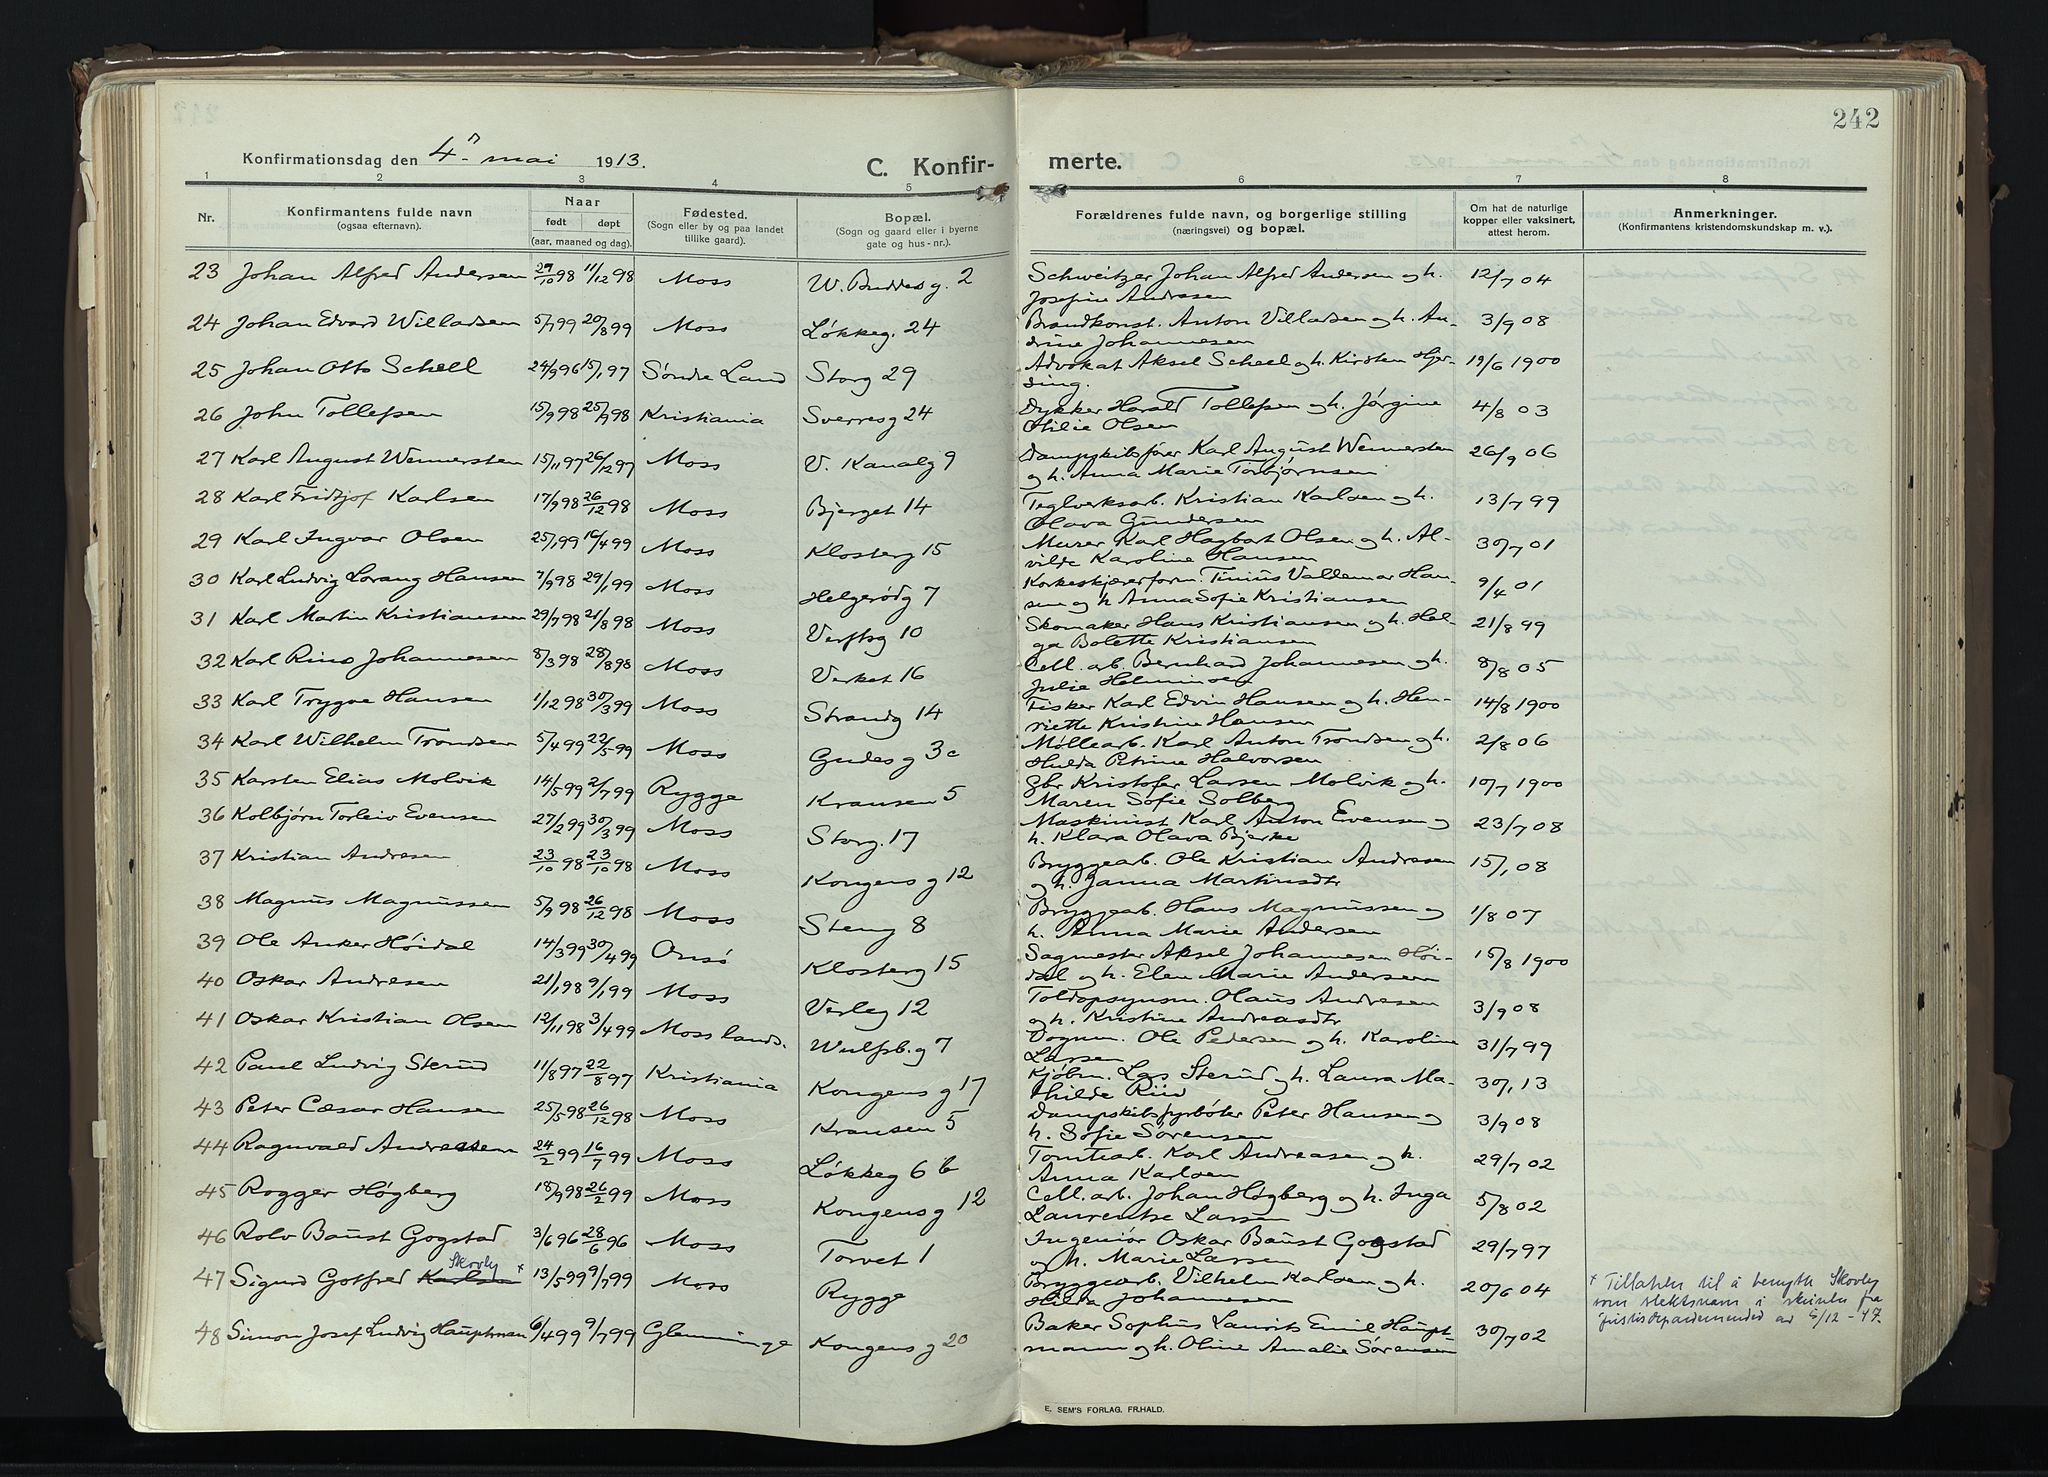 242
Konfirmationsdag den 4de mai 1913.
C. Konfir-
merte.
1 2 3 4 5 6 7 8
Nr.
Konfirmantens fulde navn
(ogsaa efternavn).
Naar
født døpt
(aar, maaned og dag).
Fødested.
(Sogn eller by og paa landet
tillike gaard).
Bopæl.
(Sogn og gaard eller i byerne
gate og hus-nr.).
Forældrenes fulde navn, og borgerlige stilling
(næringsvei) og bopæl.
Om hat de naturlige
kopper eller vaksinert,
attest herom.
Anmerkninger.
(Konfirmantens kristendomskundskap m. v.).
23 Johan Alfred Andersen 29/10 98 11/12 98 Moss W. Buddesg. 2 Schweitzer Johan Alfred Andersen og h. 12/7 04
Josefine Andresen
24 Johan Edvard Willadsen 5/7 99 20/8 99 Moss Løkkeg. 24 Brandkonst. Anton Villadsen og h. An- 3/9 08
drine Johannesen
25 Johan Otto Scheel 24/9 96 15/1 97 Søndre Land Storg 29 Advokat Aksel Scheel og h. Kirsten Hjer- 19/6 1900
ding.
26 John Tollefsen 15/9 98 25/9 98 Kristiania Sverresg 24 Dykker Harald Tollefsen og h. Jørgine 4/8 03
Otilie Olsen
27 Karl August Wennersten 15/11 97 26/12 97 Moss V. Kanalg 9 Dampskibsfører Karl August Wennersten 26/9 06
og h. Anna Marie Torbjørnsen
28 Karl Fridtjof Karlsen 17/9 98 26/12 98 Moss Bjerget 14 Teglverksarb. Kristian Karlsen og h. 13/7 99
Olava Gundersen
29 Karl Ingvar Olsen 25/1 99 16/4 99 Moss Klosterg 15 Murer Karl Hagbart Olsen og h. Al- 30/7 01
vilde Karoline Hansen
30 Karl Ludvig Lorang Hansen 7/9 98 29/1 99 Moss Helgerødg 7 Korkeskjærerform. Tinius Valdemar Han- 9/4 01
sen og h Anna Sofie Kristiansen
31 Karl Martin Kristiansen 29/7 98 21/8 98 Moss Verftsg 10 Skomaker Hans Kristiansen og h. Hel- 21/8 99
ga Bolette Kristiansen
32 Karl Rino Johannesen 8/3 98 28/8 98 Moss Verket 16 Cell. arb. Bernhard Johannesen og h. 8/8 05
Julie
33 Karl Trygve Hansen 1/12 98 30/3 99 Moss Strandg 14 Fisker Karl Edvin Hansen og h. Hen- 14/8 1900
riette Kristine Hansen
34 Karl Wilhelm Trondsen 5/4 99 22/5 99 Moss Gudes g 3c Møllearb. Karl Anton Trondsen og h. 2/8 06
Hulda Petrine Halvorsen
35 Karsten Elias Molvik 14/5 99 2/7 99 Rygge Kransen 5 Gbr Kristofer Larsen Molvik og h. 10/7 1900
Maren Sofie Solberg
36 Kolbjørn Torleiv Evensen 27/2 99 30/3 99 Moss Storg. 17 Maskinist Karl Anton Evensen og 23/7 08
h. Klara Olava Bjerke
37 Kristian Andresen 23/10 98 23/10 98 Moss Kongens g 12 Bryggearb. Ole Kristian Andresen 15/1 08
og h. Janna Martinsdtr
38 Magnus Magnussen 5/9 98 26/12 98 Moss Steng 8 Bryggearb. Hans Magnussen og 1/8 07
h. Anna Marie Andersen
39 Ole Anker Høidal 14/3 99 30/4 99 Onsø Klosterg 15 Sagmester Aksel Johannesen Høi- 15/8 1900
dal og h. Elen Marie Andersen
40 Oskar Andresen 21/1 98 9/1 99 Moss Verleg 12 Toldopsynsm. Olaus Andresen 3/9 08
og h. Kristine Andreasdtr
41 Oskar Kristian Olsen 12/11 98 3/4 99 Moss lands. Wulfsb. g 7 Vognm. Ole Pedersen og h. Karoline 31/7 99
Larsen
42 Paul Ludvig Sterud 11/8 97 22/8 97 Kristiania Kongens g 17 Kjøbm. Lars Sterud og h. Laura Ma- 30/1 13
thilde Riis
43 Peter Cæsar Hansen 25/5 98 26/12 98 Moss Kransen 5 Dampskibsfyrbøter Peter Hansen og 3/9 08
h. Sofie Sørensen
44 Ragnvald Andreassen 24/2 99 16/7 99 Moss Løkkeg 6 b Tomtearb. Karl Andreasen og h. 29/7 02
Anna Karlsen
45 Rogger Høgberg 18/9 98 26/2 99 Moss Kongens g 12 Cell. arb. Johan Høgberg og h. Inga 5/8 02
Laurentze Larsen
46 Rolv Baust Gogstad 3/6 96 28/6 96 Moss Torvet 1 Ingeniør Oskar Baust Gogstad 29/7 97
og h. Marie Larsen
Skovly
47 Sigurd Gotfred Karlsen x 13/5 99 9/7 99 Moss Rygge Bryggearb. Vilhelm Karlsen og h. 20/6 04
Hilda Johannesen
x Tillatelse til å benytte Skovly
som slektsnavn i skrivelse fra
justisdepartementet av 5/12 - 47.
48 Simon Josef Ludvig Hauptmann 6/4 99 9/7 99 Glemminge Kongens g 20 Baker Sophus Laurits Emil Haupt- 30/7 02
mann og h. Oline Amalie Sørensen
E. SEM'S FORLAG, FR.HALD.